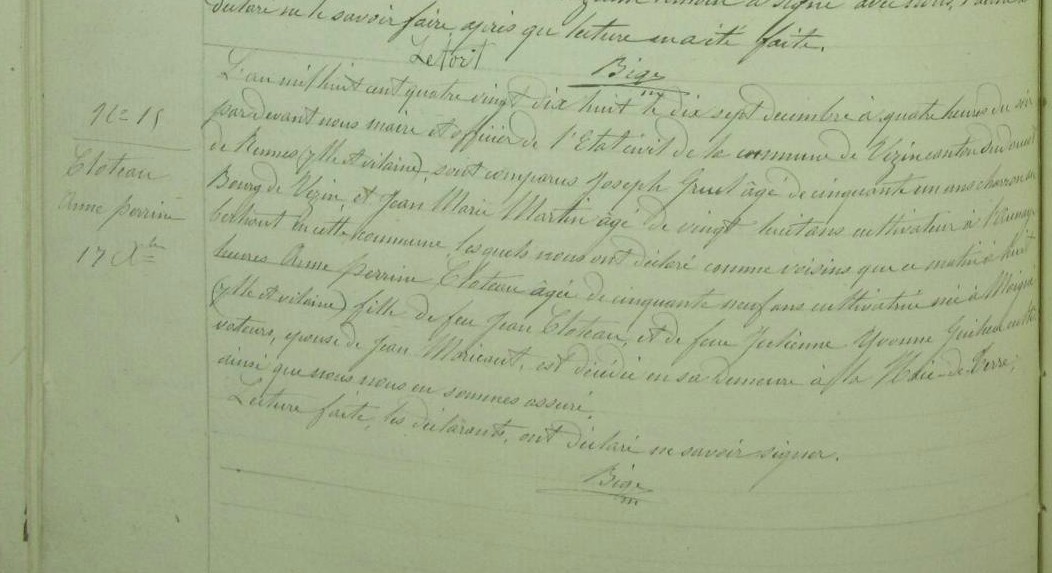 déclaré ne le savoir faire, après que lecture en a été faite.
Letort
Bige
L'an mil huit cent quatre vingt dix huit le dix sept décembre à quatre heures du soir
par devant nous maire et officier de l'Etat civil de la commune de Vezin canton Sud ouest
de Rennes (Ille et vilaine), sont comparus Joseph Gruel âgé de cinquante un ans charron au
Bourg de Vezin, et Jean Marie Martin âgé de vingt huit ans cultivateur à
en cette commune, lesquels nous ont déclaré comme voisins que ce matin à huit
heures Anne Perrine Cloteau âgée de cinquante neuf ans cultivatrice née à Moigné
(Ille et vilaine) fille de feu Jean Cloteau, et de feue Julienne Yvonne
vateurs, épouse de Jean Moricault, est décédée en sa demeure à la Haie-de-Terre,
ainsi que nous nous en sommes assuré.
Lecture faite, les déclarants, ont déclaré ne savoir signer.
Bige
N° 15
Cloteau
Anne Perrine
17 Xbre